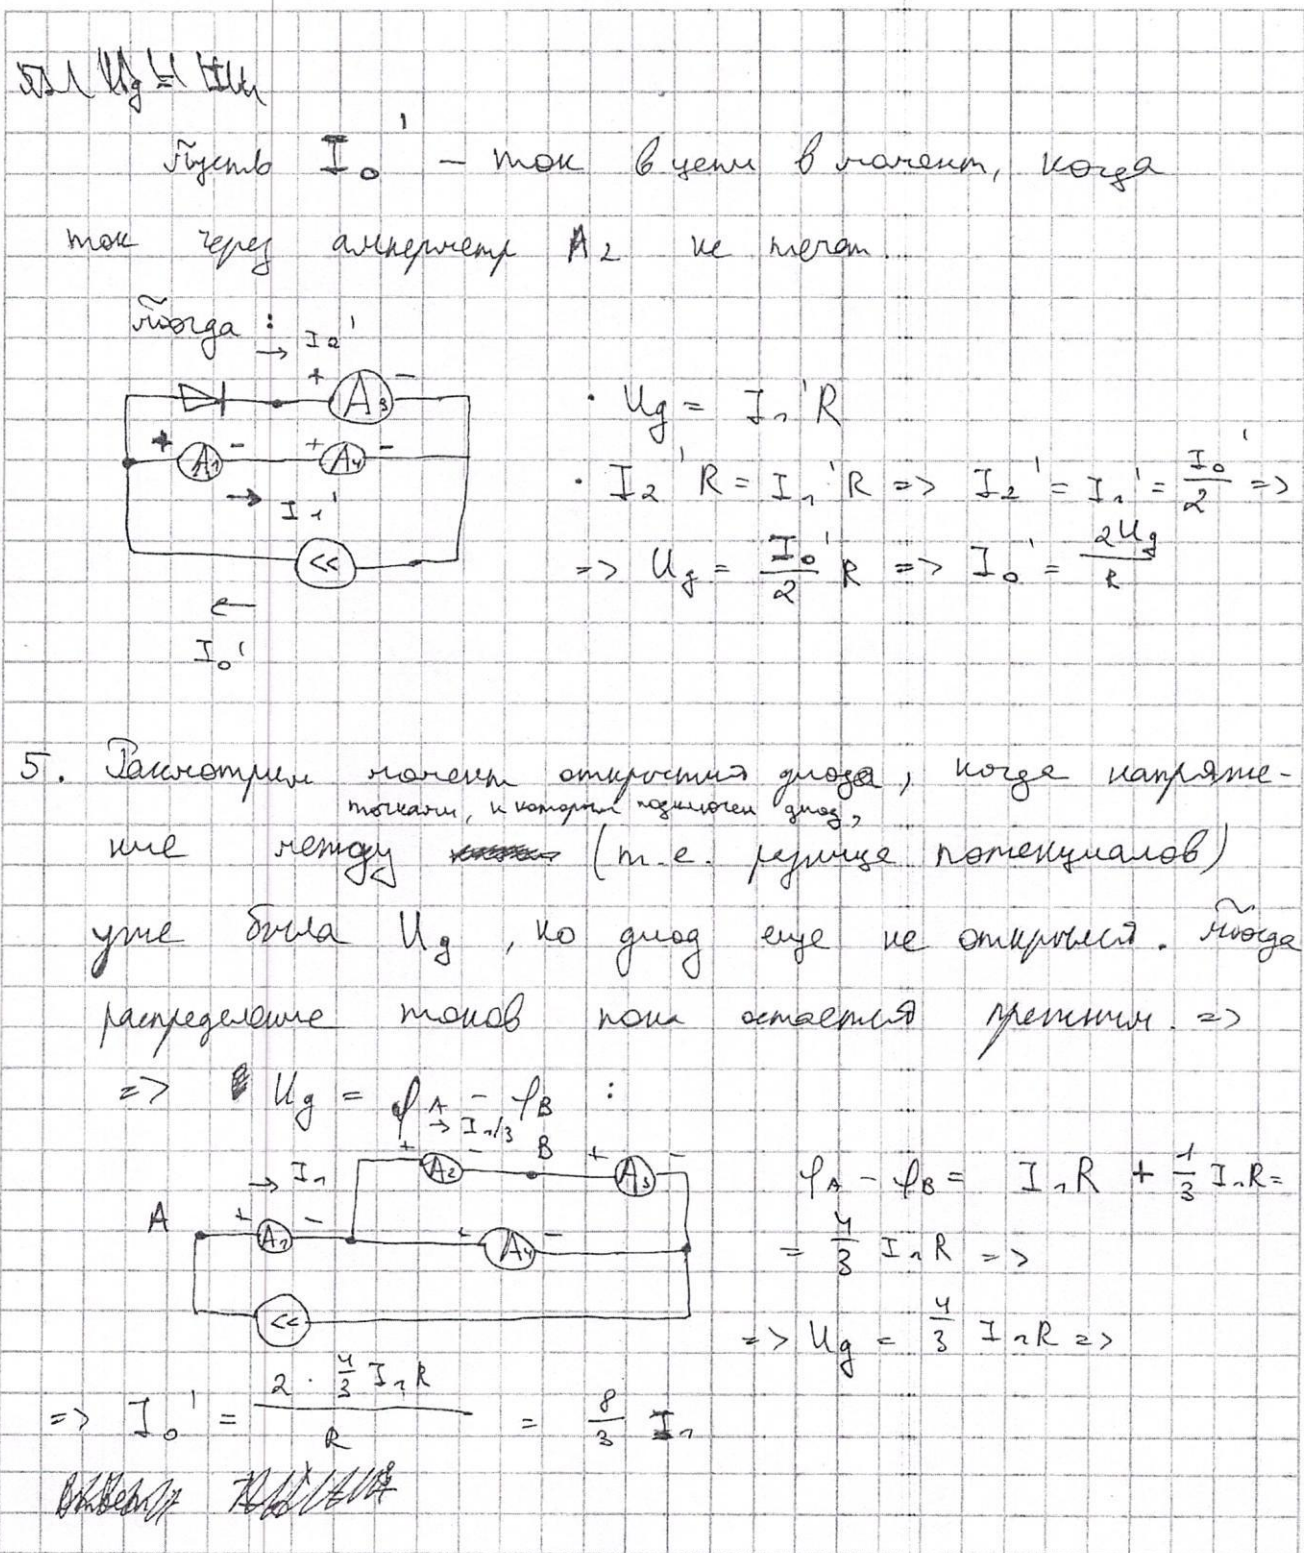 Пусть I₀' – ток в цепи в момент, когда
ток через амперметр A₂ не течёт.
Тогда :
→ I₂'
+ A₃ –
+ A₁ – + A₄ –
→ I₁'
<<
←
I₀'
· Uд = I₁'R
· I₂'R = I₁'R => I₂' = I₁' = I₀'/2 =>
=> Uд = I₀'/2 R => I₀' = 2Uд/R
5. Рассмотрим момент открытия диода, когда напряже-
точками, к которым подключен диод,
ние между (т.е. разница потенциалов)
уже была Uд, но диод еще не открылся. Тогда
распределение токов пока остается прежним. =>
=> Uд = φA – φB :
→ I₁/3
+ A₂ – B + A₃ –
→ I₁
A + A₁ – + A₄ –
<<
φA – φB = I₁R + 1/3 I₁R =
= 4/3 I₁R =>
=> Uд = 4/3 I₁R =>
=> I₀' = 2 · 4/3 I₁R / R = 8/3 I₁